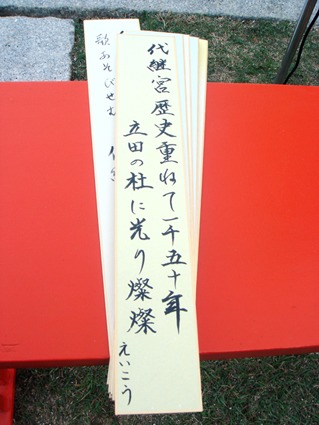 代継宮歴史重ねて一千五十年
立田の杜に光り燦燦
えいこう
歌あそびせむ